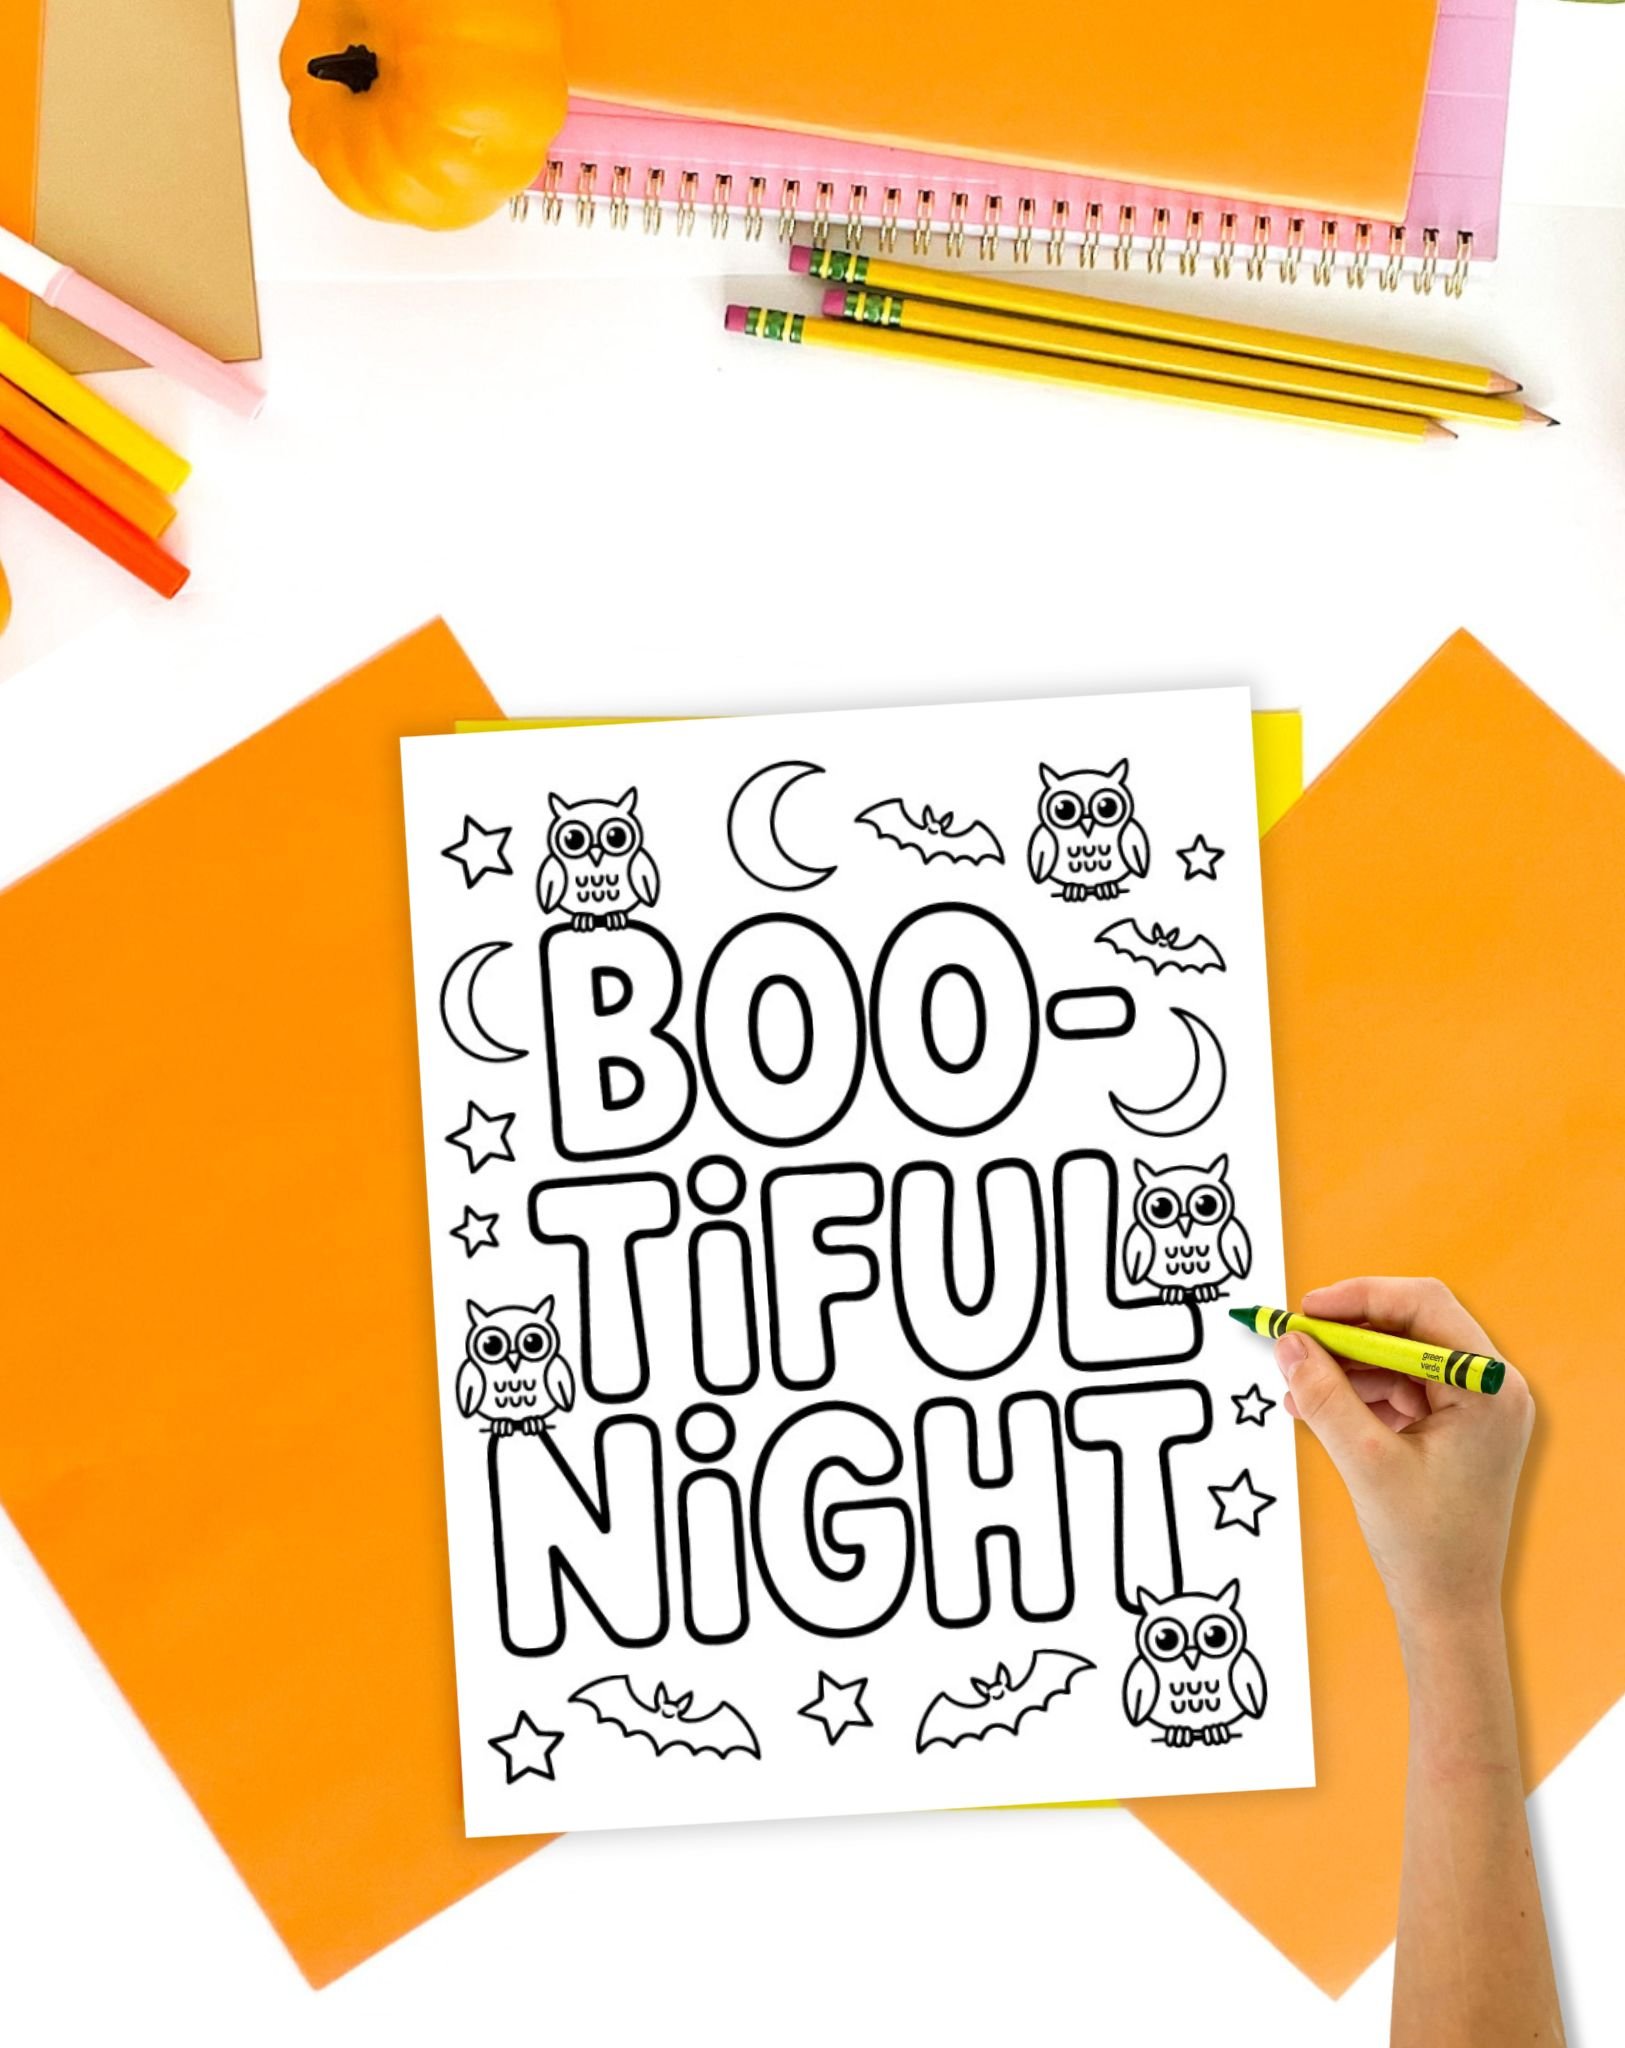 BOO-
TiFUL
NiGHT
green
verde
vert